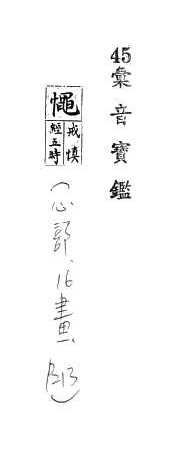 45彙音寶鑑
憴
戒慎
經五時
(心部,16畫,